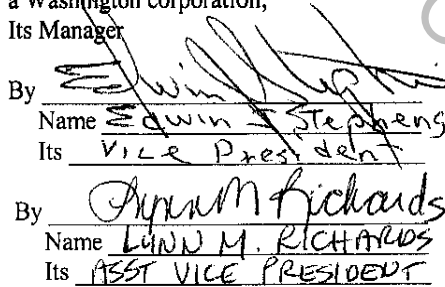 a Washington corporation,
Its Manager
By Edwin Stephens
Name Edwin I Stephens
Its Vice President
By Lynn M Richards
Name LYNN M. RICHARDS
Its ASST VICE PRESIDENT